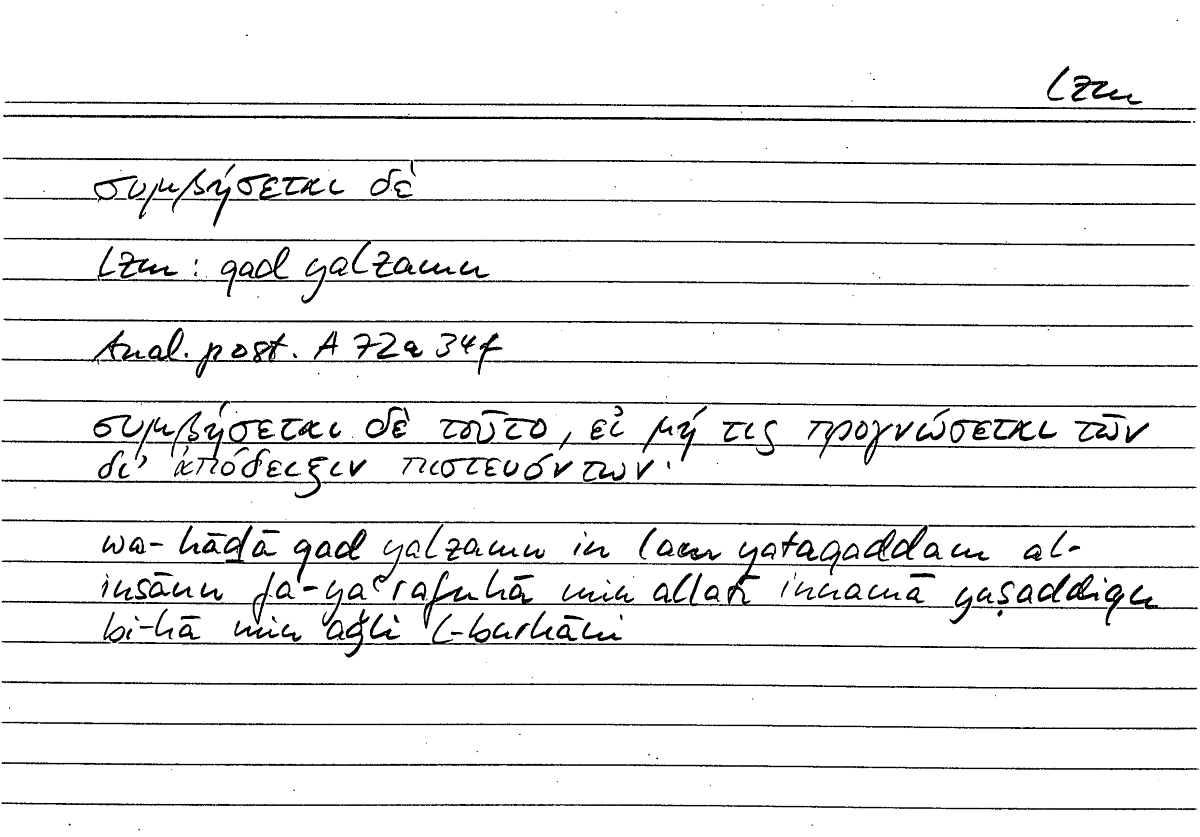 lzm
συμβήσεται δὲ
lzm : qad yalzamu
Anal. post. A 72a 34f
συμβήσεται δὲ τοῦτο, εἰ μή τις προγνώσεται τῶν
δι' ἀπόδειξιν πιστευόντων·
wa-hāḏā qad yalzamu in lam yataqaddam al-
insānu fa-yaʿrafuhā min allatī innamā yuṣaddiqu
bi-hā min aǧli l-burhāni